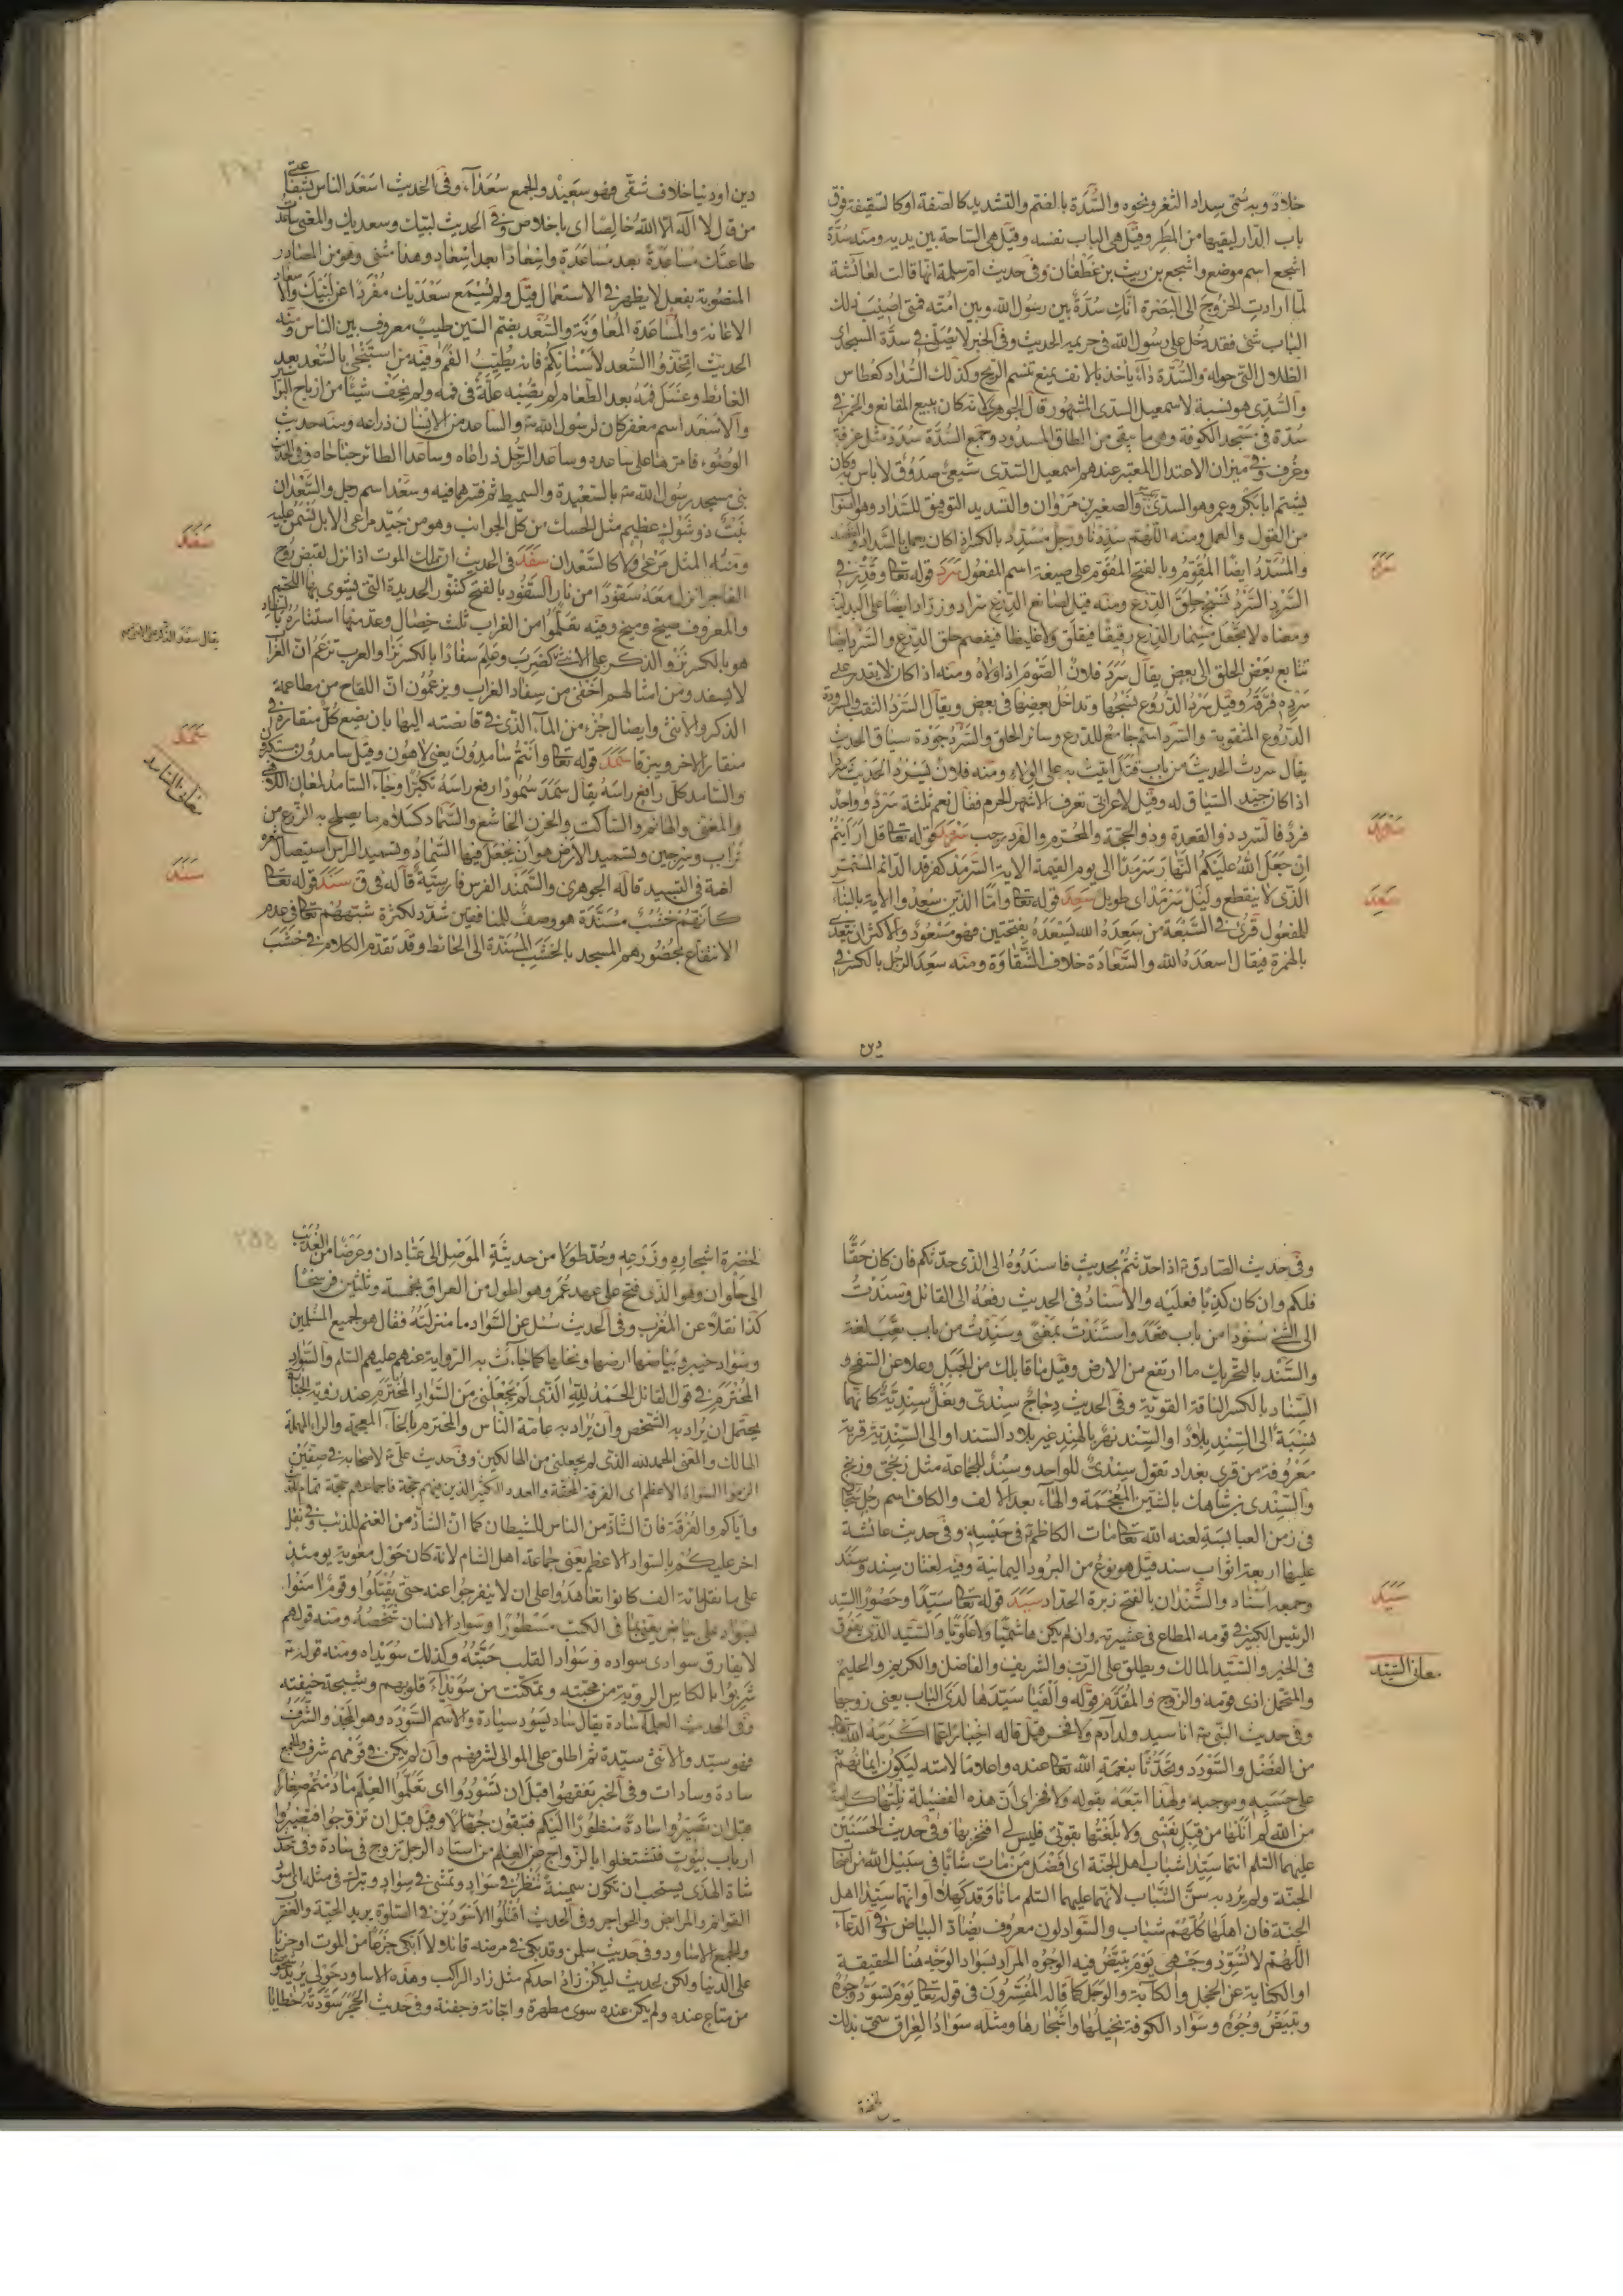 خلاد وبه سمى سداد الثغر ونحوه والسدة بالضم والتشديد كالصفة او كالسقيفة فوق
باب الدار ليقيها من المطر وقيل هى الباب نفسه وقيل هى الساحة بين يديه ومنه سدة
اشجع اسم موضع واشجع بن ريث بن غطفان وفى حديث ام سلمة انها قالت لعائشة
لما ارادت الخروج الى البصرة انك سدة بين رسول الله وبين امته فمتى اصيب ذلك
الباب شئ فقد دخل على رسول الله فى حريمه الحديث وفى الخبر لا يصلى فى سدة المسجد اى
الظلال التى حوله والسدة داء ياخذ بالانف يمنع تنسم الريح وكذلك السداد كعطاس
والسدى هو نسبة لاسمعيل السدى المشهور قال الجوهرى لانه كان يبيع المقانع والخمر فى
سدة فى مسجد الكوفة وهى ما يبقى من الطاق المسدود وجمع السدة سدد مثل غرفة
وغرف وفى ميزان الاعتدال المعتبر عندهم اسمعيل السدى شيعى صدوق لا باس به وكان
يشتم ابابكر وعمر وهو السدى والصغير بن مروان والتسديد التوفيق للسداد وهو الصواب
من القول والعمل ومنه اللهم سددنا ورجل مسدد بالكسر اذا كان يعمل بالسداد والقصد
والمسدد ايضا المقوم وبالفتح المقوم على صيغة اسم المفعول سرد قوله تعا وقدر فى
السرد السرد نسج حلق الدرع ومنه قيل لصانع الدرع سراد وزراد ايضا على البدلية
ومعناه لا تجعل مسمار الدرع رقيقا فيقلق ولا غليظا فيفصم حلق الدرع والسرد ايضا
تتابع بعض الحلق الى بعض يقال سرد فلان الصوم اذا والاه ومنه اذا كان لا يقدر على
سرده فرقه وقيل سرد الدروع نسجها وتداخل بعضها فى بعض ويقال السرد النقب والمسرودة
الدروع المثقوبة والسرد اسم جامع للدرع وسائر الحلق والسرد جودة سياق الحديث
يقال سردت الحديث من باب قتل اتيت به على الولاء ومنه فلان يسرد الحديث سردا
اذا كان جيد السياق له وقيل لاعرابى تعرف الاشهر الحرم فقال نعم ثلثة سرد وواحد
فرد فالسرد ذو القعدة وذو الحجة والمحرم والفرد رجب سرمد قوله تعا قل ارايتم
ان جعل الله عليكم النهار سرمدا الى يوم القيمة الاية السرمد كفرقد الدائم المستمر
الذى لا ينقطع وليل سرمد اى طويل سعد قوله تعا واما الذين سعدوا الاية بالبناء
للمفعول قرئ فى السبعة من سعده الله يسعده بفتحتين فهو مسعود والاكثر ان يتعدى
بالهمزة فيقال اسعده الله والسعادة خلاف الشقاوة ومنه سعد الرجل بالكسر فى
دين
سرد
سرمد
سعد
دين او دنيا خلاف شقى فهو سعيد والجمع سعداء وفى الحديث اسعد الناس بشفاعتى
من قال لا اله الا الله خالصا اى باخلاص وفى الحديث لبيك وسعديك والمعنى ساعد
طاعتك مساعدة بعد مساعدة واسعادا بعد اسعاد وهذا مثنى وهو من المصادر
المنصوبة بفعل لا يظهر فى الاستعمال قيل ولم يسمع سعديك مفردا عن لبيك والاسعاد
الاعانة والمساعدة المعاونة والسعد بضم السين طيب معروف بين الناس ومنه
الحديث اتخذوا السعد لاسنانكم فانه يطيب الفم وفيه من استنجى بالسعد بعد
الغائط وغسل فمه بعد الطعام لم تصبه علة فى فمه ولم يخف شيئا من ارياح البواسير
والاسعد اسم مغفر كان لرسول الله ص والساعد من الانسان ذراعه ومنه حديث
الوضوء فامرها على ساعده وساعد الرجل ذراعاه وساعدا الطائر جناحاه وفى الحديث
بنى مسجد رسول الله ص بالسعيدة والسميط ثم فسرهما فيه وسعد اسم رجل والسعدان
نبت ذو شوك عظيم مثل الحسك من كل الجوانب وهو من جيد مراعى الابل تسمن عليه
ومنه المثل مرعى ولا كالسعدان سفد فى الحديث ان ملك الموت اذا نزل لقبض روح
الفاجر انزل معه سفودا من نار السفود بالفتح كتنور الحديدة التى يشوى بها اللحم
والمعروف صيخ وميخ وفيه تعلموا من الغراب ثلث خصال وعد منها استتاره بالسفاد
هو بالكسر نزو الذكر على الانثى كضرب وعلم سفادا بالكسر نزا والعرب تزعم ان الغراب
لا يسفد ومن امثالهم اخفى من سفاد الغراب ويزعمون ان اللقاح من مطاعمة
الذكر والانثى وايصال جزء من الماء الذى فى قانصته اليها بان يضع كل منقاره فى
منقار الاخر ويتزقا سمد قوله تعا وانتم سامدون يعنى لاهون وقيل سامدون مستكبرون
والسامد كل رافع راسه يقال سمد سمودا رفع راسه تكبرا وجاء السامد لمعان اللاهى
والمغنى والهائم والساكت والحزين الخاشع والسماد كسلام ما يصلح به الزرع من
تراب وسرجين وتسميد الارض هو ان يجعل فيها السماد وتسميد الراس استيصال شعره
لغة فى التسبيد قاله الجوهرى والسمند الفرس فارسية قاله فى ق سند قوله تعا
كانهم خشب مسندة هو وصف للمنافقين شدد لكثرة شبههم تعا فى عدم
الانتفاع بحضورهم المسجد بالخشب المسندة الى الحائط وقد تقدم الكلام فى خشب
سفد
سمد
معانى السامد
سند
وفى حديث الصادق ع اذا حدثتم بحديث فاسندوه الى الذى حدثكم فان كان حقا
فلكم وان كان كذبا فعليه والاسناد فى الحديث رفعه الى القائل وسندت
الى الشئ سنودا من باب قعد واستندت بمعنى وسندت من باب تعب لغة
والسند بالتحريك ما ارتفع من الارض وقيل ما قابلك من الجبل وعلا عن السفح و
السناد بالكسر الناقة القوية وفى الحديث دجاج سندى وبغل سندية كانها
نسبة الى السند بلاد او السند نهر بالهند غير بلاد السند او الى السندية قرية
معروفة من قرى بغداد تقول سندى للواحد وسند للجماعة مثل زنجى وزنج
والسندى بن شاهك بالشين المعجمة والهاء بعد الالف والكاف اسم رجل سجان
فى زمن العباسية لعنه الله تعا مات الكاظم ع فى حبسه وفى حديث عائشة
عليها اربعة اثواب سند قيل هو نوع من البرود اليمانية وفيه لغتان سند وسند
وجمعه اسناد والسندان بالفتح زبرة الحداد سيد قوله تعا سيدا وحصورا السيد
الرئيس الكبير فى قومه المطاع فى عشيرته وان لم يكن هاشميا ولا علويا والسيد الذى يفوق
فى الخير والسيد المالك ويطلق على الرب والشريف والفاضل والكريم والحليم
والمتحمل اذى قومه والزوج والمقدم قوله والفيا سيدها لدى الباب يعنى زوجها
وفى حديث النبى ص انا سيد ولد ادم ولا فخر قيل قاله اخبارا عما اكرمه الله تعا
من الفضل والسودد وتحدثا بنعمة الله تعا عنده واعلاما لامته ليكون ايمانهم
على حسبه وموجبه ولهذا اتبعه بقوله ولا فخر اى ان هذه الفضيلة نلتها كرامة
من الله لم انلها من قبل نفسى ولا بلغتها بقوتى فليس لى افتخر بها وفى حديث الحسنين
عليهما السلم انتما سيدا شباب اهل الجنة اى افضل من مات شابا فى سبيل الله من اصحاب
الجنة ولم يرد به سن الشباب لانهما عليهما السلم ماتا وقد كهلا او انهما سيدا اهل
الجنة فان اهلها كلهم شباب والسواد لون معروف يضاد البياض وفى الدعاء
اللهم لا تسود وجهى يوم تبيض فيه الوجوه المراد بسواد الوجه هنا الحقيقة
او الكناية عن الخجل والكآبة والوجل كما قاله المفسرون فى قوله تعا يوم تسود وجوه
وتبيض وجوه وسواد الكوفة نخيلها واشجارها ومثله سواد العراق سمى بذلك
لخضرة
سيد
معانى السيد
لخضرة اشجاره وزرعه وحد طولا من حديثة الموصل الى عبادان وعرضا من العذيب
الى حلوان وهو الذى فتح على عهد عمر وهو اطول من العراق بخمسة وثلثين فرسخا
كذا نقلا عن المغرب وفى الحديث سئل عن السواد ما منزلته فقال هو لجميع المسلمين
وسواد خيبر وبياضها ارضها ونخلها كما جاءت به الرواية عنهم عليهم السلم والسواد
المخترم فى قول القائل الحمد لله الذى لم يجعلنى من السواد المخترم عند رؤية الجنازة
يحتمل ان يراد به الشخص وان يراد به عامة الناس والمخترم بالخاء المعجمة والراء المهملة
الهالك والمعنى الحمد لله الذى لم يجعلنى من الهالكين وفى حديث على ع لاصحابه فى صفين
الزموا السواد الاعظم اى الفرقة المحقة والعدد الكثير الذين فيهم حجة فاجماعهم حجة
واياكم والفرقة فان الشاذ من الناس للشيطان كما ان الشاذ من الغنم للذئب وفى نقل
اخر عليكم بالسواد الاعظم يعنى جماعة اهل الشام لانه كان حول معوية يومئذ
على ما نقل مائة الف كانوا تعاهدوا على ان لا ينفرجوا عنه حتى يقتلوا وقوم امنوا
بسواد على بياض يعنى بما فى الكتب مسطورا وسواد الانسان شخصه ومنه قولهم
لا يفارق سوادى سواده وسواد القلب حبته وكذلك سويداه ومنه قوله ع
شربوا بالكاس الروية من محبته وتمكنت من سويداء قلوبهم وشيجة خيفته
وفى الحديث العلماء سادة يقال ساد يسود سيادة والاسم السودد وهو المجد والشرف
فهو سيد والانثى سيدة ثم اطلق على الموالى لشرفهم وان لم يكن فى قومهم شرف والجمع
سادة وسادات وفى الخبر تفقهوا قبل ان تسودوا اى تعلموا العلم ما دمتم صغارا
قبل ان تصيروا سادة منظورا اليكم فتبقون جهالا وقيل قبل ان تزوجوا فتصيروا
ارباب بيوت فتشتغلوا بالزواج عن العلم من استاد الرجل تزوج فى سادة وفى حديث
شاة الهدى يستحب ان تكون سمينة تنظر فى سواد وتمشى فى سواد وتبرك فى مثله اى سود
القوائم والمرابض والحواجر وفى الحديث اقتلوا الاسودين فى الصلوة يريد الحية والعقرب
والجمع الاساود وفى حديث سلمن وقد بكى فى مرضه قائلا لا ابكى جزعا من الموت او حزنا
على الدنيا ولكن لحديث ليكن زاد احدكم مثل زاد الراكب وهذه الاساود حولى يريد شخوصا
من متاع عنده ولم يكن عنده سوى مطهرة واجانة وجفنة وفى حديث الحجر سودته خطايا